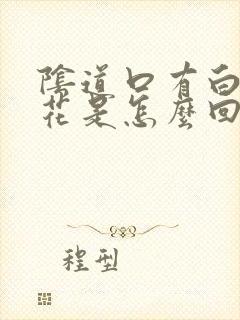 陰道口有白
花是怎麼回
程型